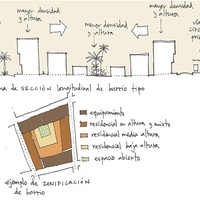 mayor densidad
y altura
menor densidad
y altura
mayor densidad
y altura
de SECCIÓN longitudinal de barrio tipo
equipamiento
residencial en altura y mixto
residencial media altura
residencial baja altura
espacio abierto
ejemplo de ZONIFICACIÓN
de barrio